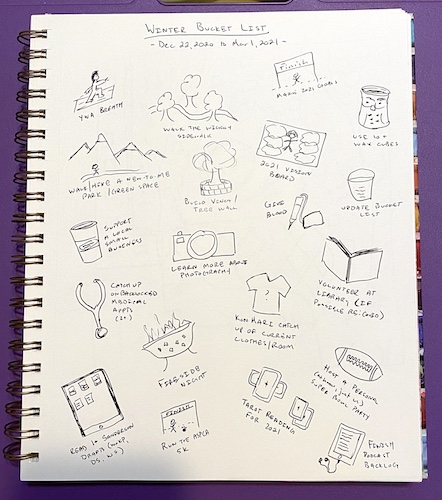 WINTER BUCKET LIST
- DEC 22, 2020 to MAR 1, 2021 -
Finish
MAKE 2021 GOALS
YWA BREATH
WALK THE WINDY
SIDEWALK
USE 10+
WAX CUBES
WALK/HIKE A NEW-TO-ME
PARK/GREEN SPACE
BUILD VENOM/
TREE WALL
2021 VISION
BOARD
GIVE
BLOOD
UPDATE BUCKET
LIST
SUPPORT
A LOCAL
SMALL
BUSINESS
LEARN MORE ABOUT
PHOTOGRAPHY
VOLUNTEER AT
LIBRARY (IF
POSSIBLE RE: COVID)
CATCH UP
ON BACKLOCKED
MEDICAL
APPTS
(2+)
?
KON MARI CATCH
UP OF CURRENT
CLOTHES/ROOM
FIRESIDE
NIGHT
HOST A PERSONAL
SUPER BOWL PARTY
READ 1+ SANDERSON
FINISH
RUN THE ASPCA
5K
TAROT READING
FOR 2021
FINISH
PODCAST
BACKLOG